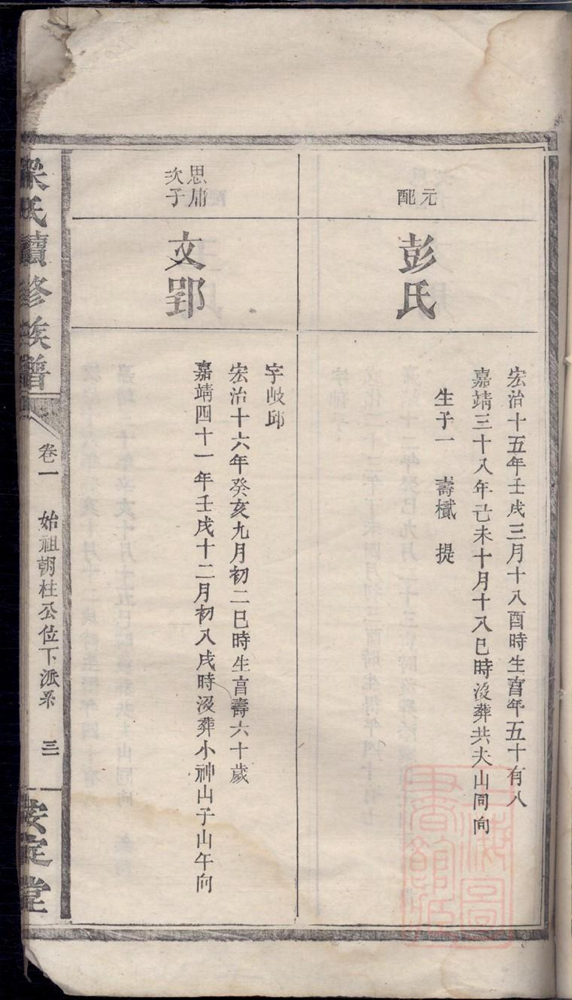 元配
彭氏
宏治十五年壬戌三月十八酉時生富年五十有八
嘉靖三十八年己未十月十八巳時沒葬共夫山同向
生子一 壽櫼 提
思庸次子
文郢
字岐邱
宏治十六年癸亥九月初二巳時生富壽六十歲
嘉靖四十一年壬戌十二月初八戌時沒葬小神山子山午向
氏續修族譜
卷一 始祖朝柱公位下派系 三
安定堂